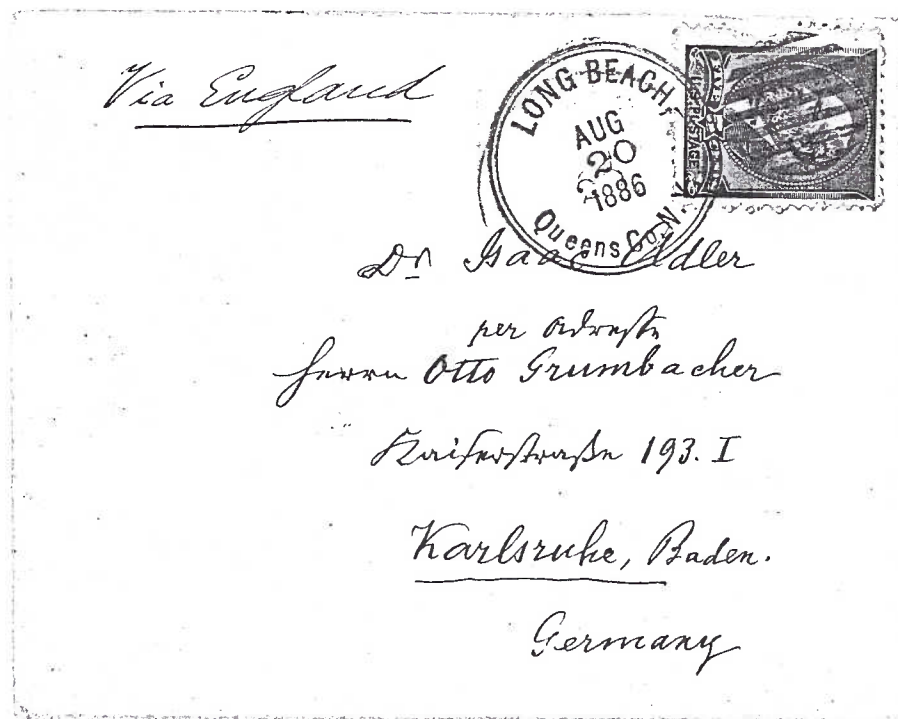 Via England
LONG BEACH,
AUG
20
1886
Queens Co. N.Y.
U.S. POSTAGE
Dr Isaac Adler
per Adresse
Herrn Otto Grumbacher
Kaiserstraße 193. I
Karlsruhe, Baden.
Germany